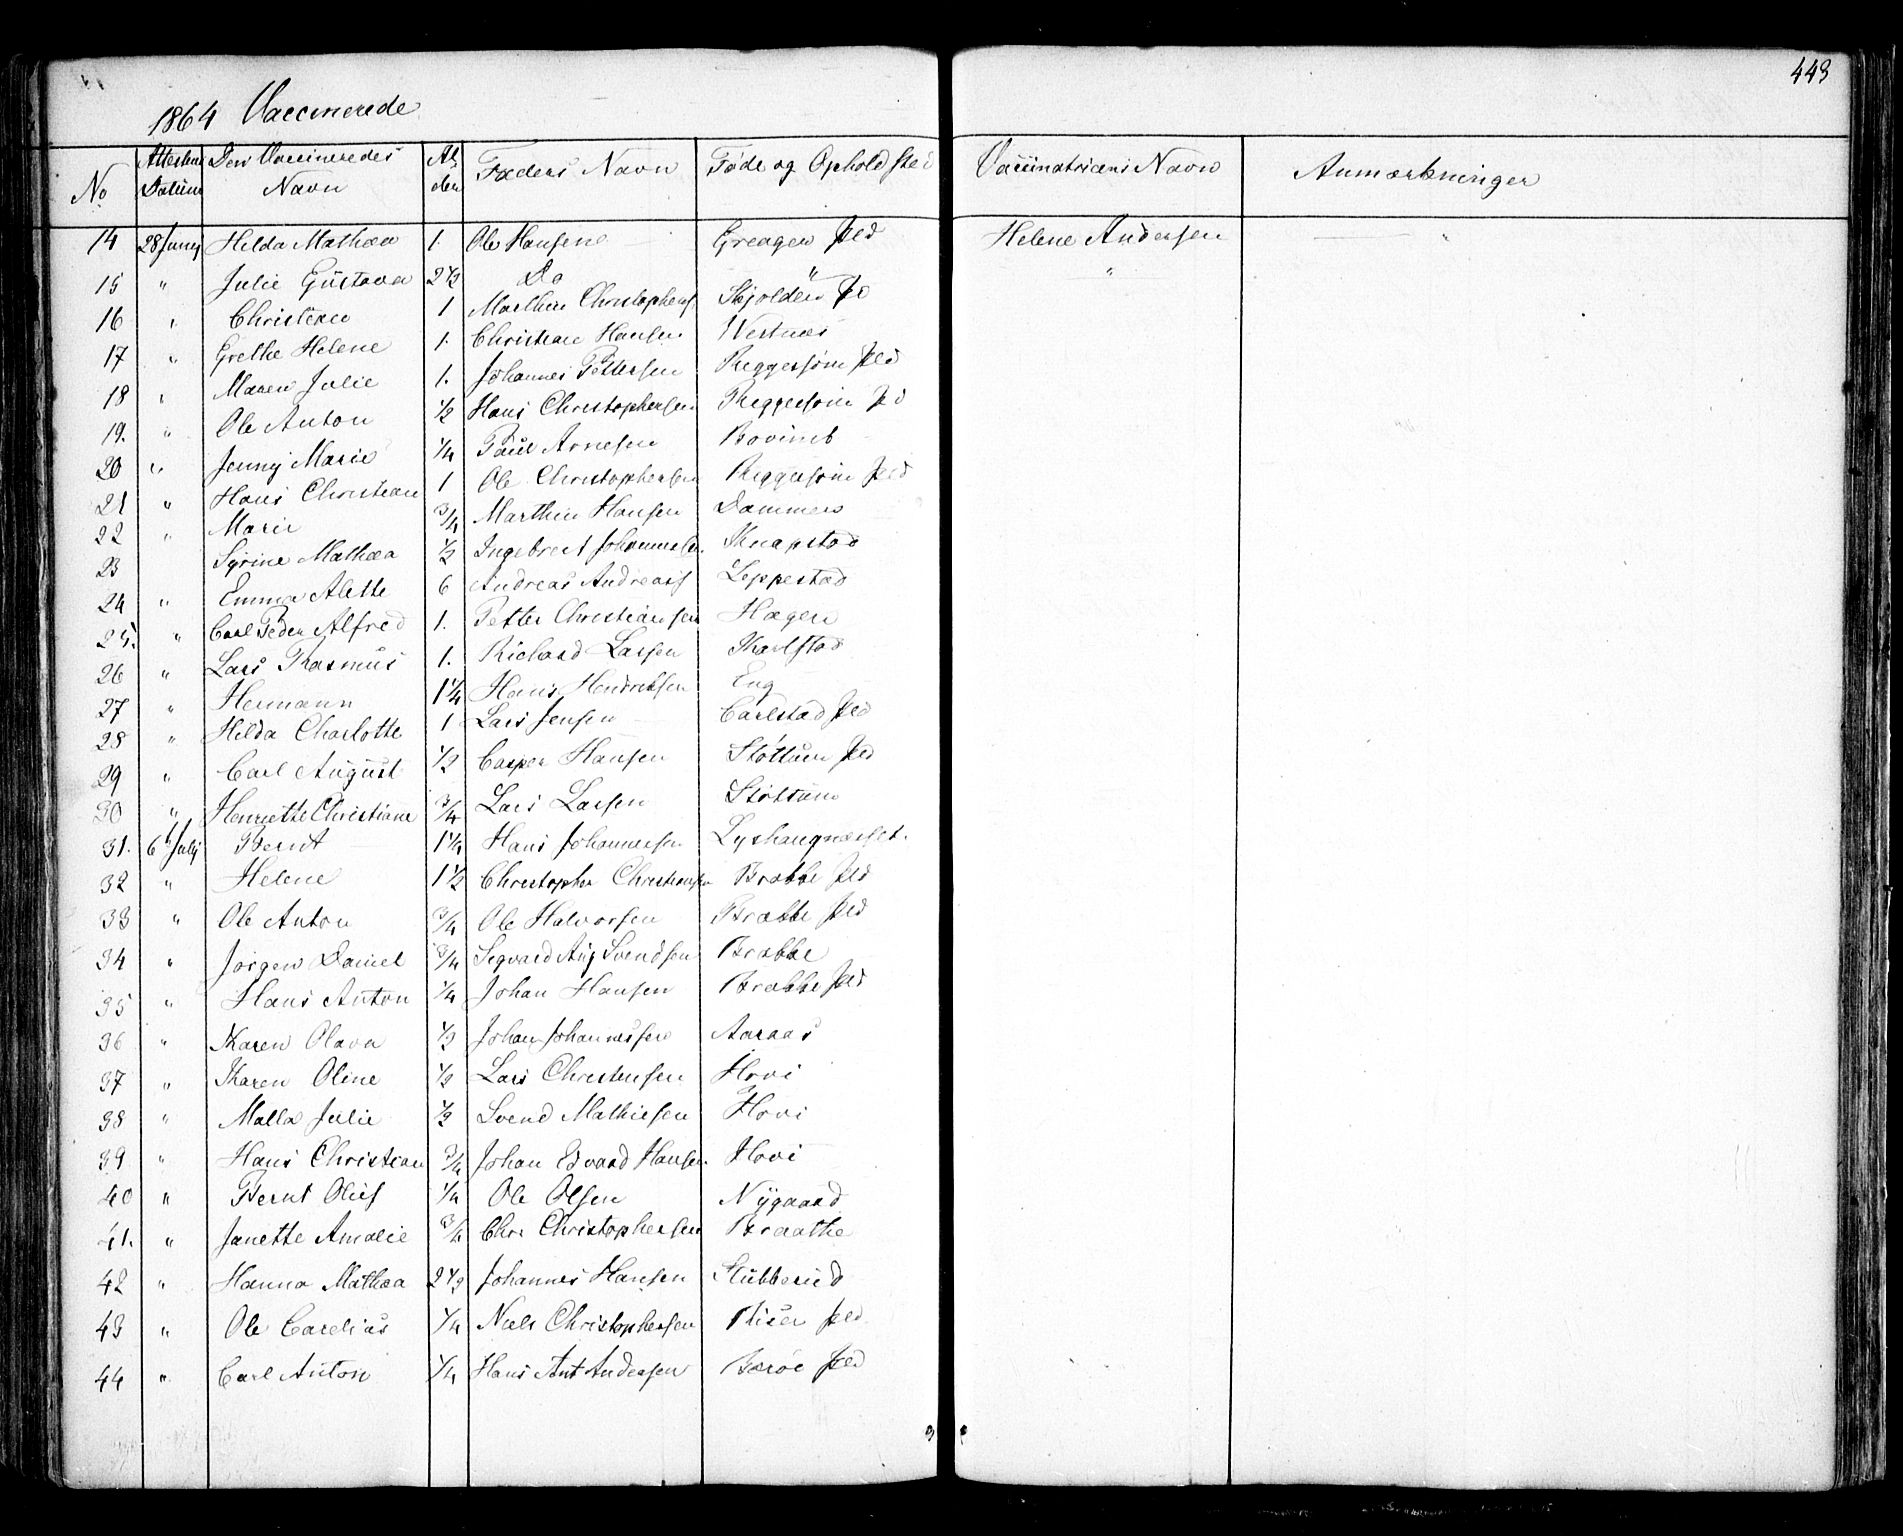 443
1864 Vaccinerede
No | Attestens Datum | Den Vaccineredes Navn | Alder | Faders Navn | Føde og Opholdsted | Vaccinatricens Navn | Anmærkninger
14 | 28 Junij | Hilda Mathea | 1. | Ole Hansen | Greager Eld | Helene Andersen | — "
15 | " | Julie Gustava | 2 1/2 | Do | " | "
16 | " | Christian | 1 | Marthin Christophers | Skjolden
17 | " | Grethe Helene | 1. | Christian Hansen | Westnes
18 | " | Maren Julie | 1. | Johannes Pettersen | Eld
19. | " | Ole Anton | 1/2 | Hans Christophersen
20 | " | Jenny Marie | 1/4 | Paul Arnesen
21 | " | Hans Christian | 1 | Ole Christophersen | Eld
22 | " | Marie | 3/4 | Marthin Hansen | Dammen
23 | Syrine Mathea | 1/2 | Ingebret Johannesen. | Knapstad
24 | " | Emma Alette | 6 | Andreas Andreas | Leppestad
25. | " | Carl Peder Alfred | 1. | Petter Christiansen | Hagen
26 | " | Lars Rasmus | 1. | Richard Larsen | Karlstad
27 | " | Hermann | 1 1/4 | Hans Hendriksen | Eng
28 | " | Hilda Charlotte | 1 | Lars Jensen | Carlstad Eld
29 | " | Carl August | 1/2 | Casper Hansen | Støttum Eld
30 | " | Henriette Christiane | 3/4 | Lars Larsen | Støttum
31. | 6t Julij | Bernt | 1 1/4 | Hans Johannesen
32 | " | Helene | 1 1/2 | Christopher Christiansen | Brække Eld
33 | " | Ole Anton | 3/4 | Ole Halvorsen | Brække Eld
34 | " | Jørgen Daniel | 3/4 | Sigvard Aug Svendsen | Brække
35 | " | Hans Anton | 1/4 | Johan Hansen | Brække Eld
36 | " | Karen Olava | 1/2 | Johan Johannessen | Aaraas
37 | " | Karen Oline | 1/2 | Lars Christensen | Hovi
38 | " | Malla Julie | 1/2 | Svend Mathiesen | Hovi
39 | " | Hans Christian | 3/4 | Johan Edvard Hansen. | Hovi
40 | " | Bernt Oluf | 1/4 | Ole Olsen | Nygaard
41. | " | Janette Amalie | 3/4 | Chr. Christophersen | Braathe
42 | " | Hanna Mathea | 2 1/2 | Johannes Hansen | Stubberud
43 | " | Ole Carelius | 1/4 | Niels Christophersen | Riser Eld.
44 | " | Carl Anton | 1/4 | Hans Ant Andersen | Barøe Eld